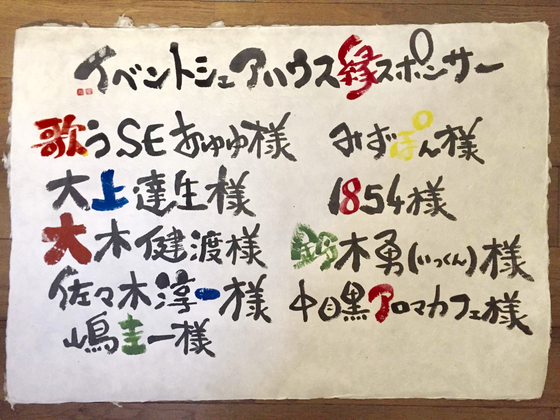 イベントシェアハウス縁スポンサー
歌うSEあゆゆ様
大上達生様
大木健渡様
佐々木淳一様
嶋圭一様
みずぽん様
1854様
鈴木勇(いっくん)様
中目黒アロマカフェ様